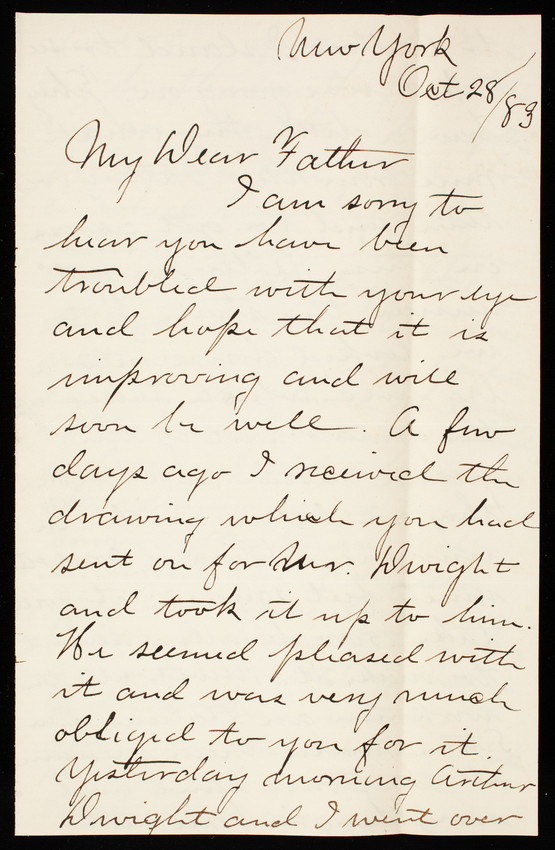 New York
Oct 28/83
My Dear Father
I am sorry to
hear you have been
troubled with your eye
and hope that it is
improving and will
soon be well. A few
days ago I received the
drawing which you had
sent on for Mr. Dwight
and took it up to him.
He seemed pleased with
it and was very much
obliged to you for it.
Yesterday morning Arthur
Dwight and I went over